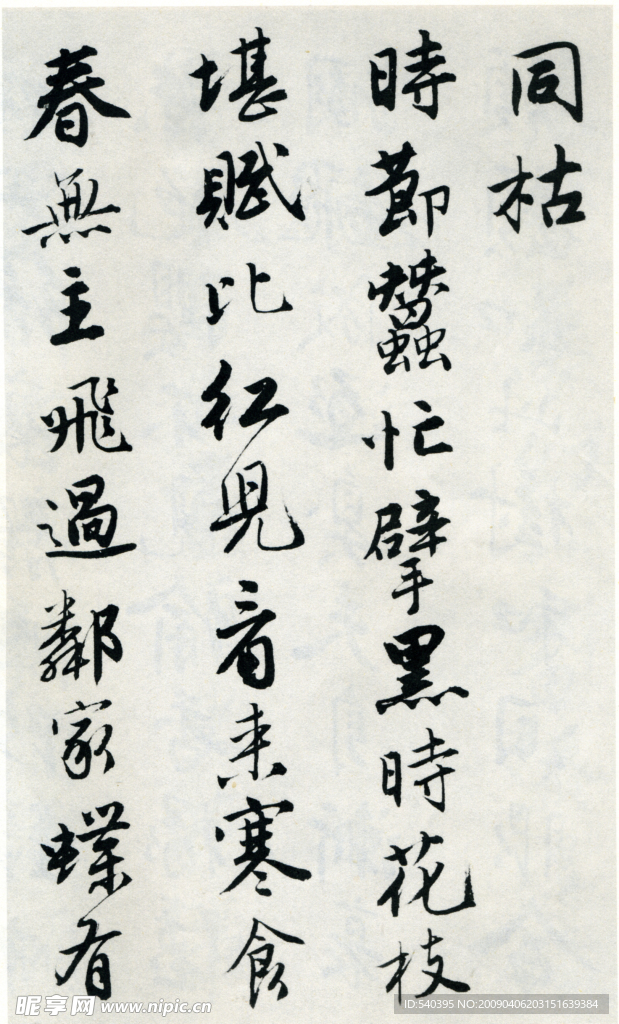 同枯
時節蠶忙擘黑時花枝
堪賦比紅兒看來寒食
春無主飛過鄰家蝶有
昵享网 www.nipic.cn
ID:540395 NO:20090406203151639384